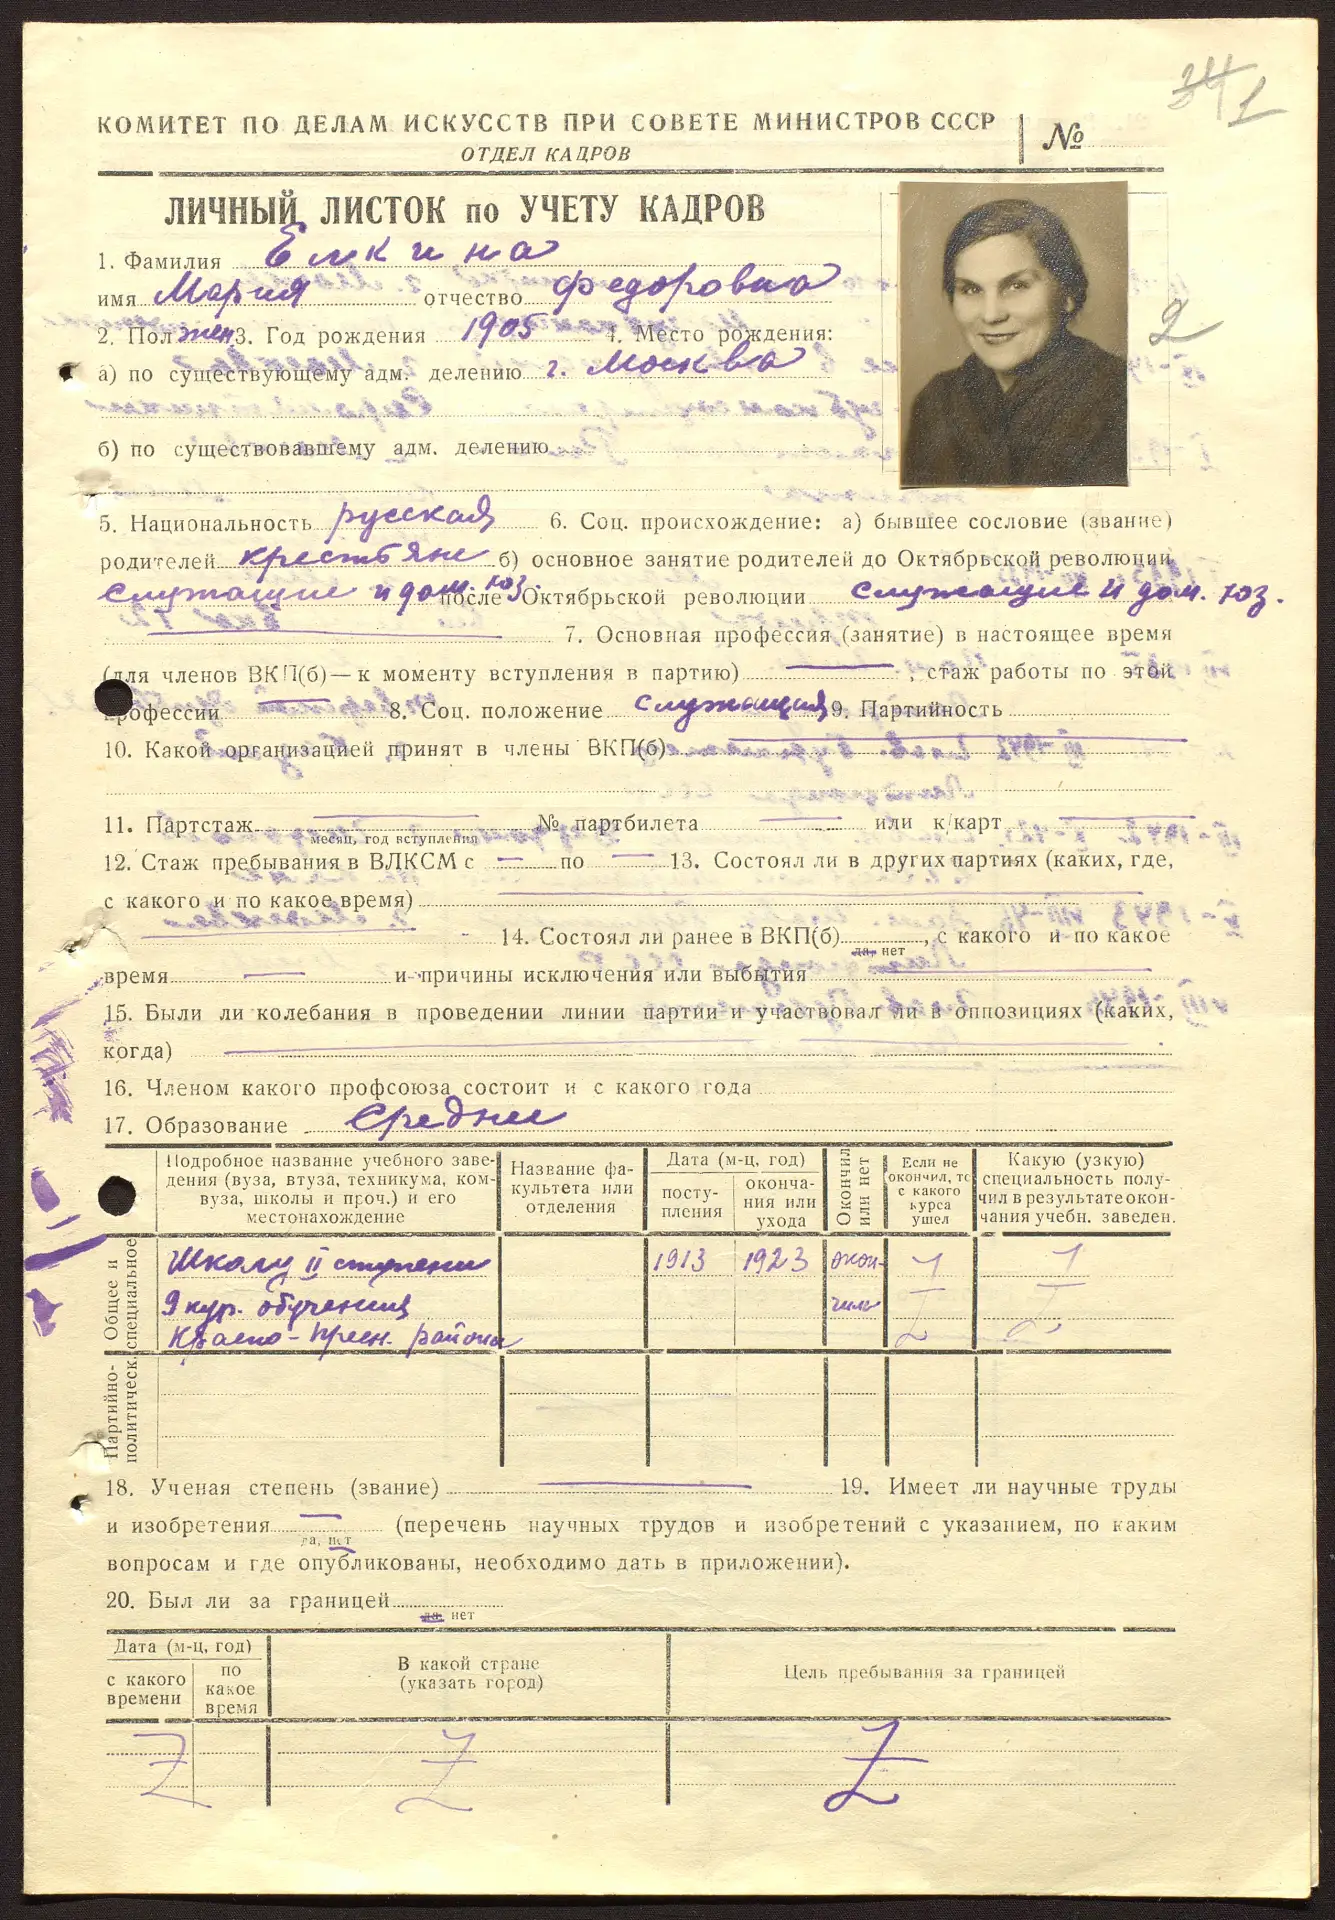 34 1
КОМИТЕТ ПО ДЕЛАМ ИСКУССТВ ПРИ СОВЕТЕ МИНИСТРОВ СССР
№
ОТДЕЛ КАДРОВ
ЛИЧНЫЙ ЛИСТОК по УЧЕТУ КАДРОВ
1. Фамилия Елкина
имя Мария отчество Федоровна
2. Пол жен 3. Год рождения 1905 4. Место рождения:
2
а) по существующему адм. делению г. Москва
б) по существовавшему адм. делению
5. Национальность русская 6. Соц. происхождение: а) бывшее сословие (звание)
родителей крестьяне б) основное занятие родителей до Октябрьской революции
служащие и дом. хоз. после Октябрьской революции служащие и дом. хоз.
7. Основная профессия (занятие) в настоящее время
(для членов ВКП(б) — к моменту вступления в партию) — , стаж работы по этой
профессии — 8. Соц. положение служащая 9. Партийность
10. Какой организацией принят в члены ВКП(б) —
11. Партстаж — № партбилета — или к/карт —
месяц, год вступления
12. Стаж пребывания в ВЛКСМ с — по — 13. Состоял ли в других партиях (каких, где,
с какого и по какое время) —
— 14. Состоял ли ранее в ВКП(б) , с какого и по какое
да, нет
время — и причины исключения или выбытия —
15. Были ли колебания в проведении линии партии и участвовал ли в оппозициях (каких,
когда) —
16. Членом какого профсоюза состоит и с какого года
17. Образование Среднее
Подробное название учебного заведения (вуза, втуза, техникума, комвуза, школы и проч.) и его местонахождение
Название факультета или отделения
Дата (м-ц, год)
поступления
окончания или ухода
Окончил или нет
Если не окончил, то с какого курса ушел
Какую (узкую) специальность получил в результате окончания учебн. заведен.
Общее и специальное
Школу II ступени 1913 1923 окон-
9 кур. обучения чила
Красно-Пресн. района
Партийно-политическ.
18. Ученая степень (звание) — 19. Имеет ли научные труды
и изобретения — (перечень научных трудов и изобретений с указанием, по каким
да, нет
вопросам и где опубликованы, необходимо дать в приложении).
20. Был ли за границей
да, нет
Дата (м-ц, год)
с какого времени
по какое время
В какой стране
(указать город)
Цель пребывания за границей
Z Z Z